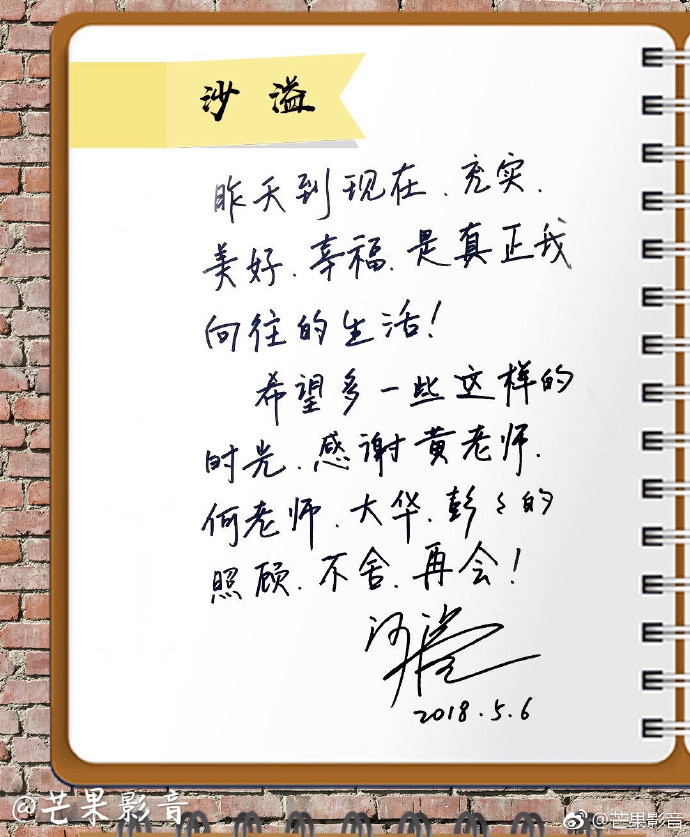 沙溢
昨天到现在、充实、
美好、幸福、是真正我
向往的生活!
希望多一些这样的
时光、感谢黄老师、
何老师、大华、彭彭的
照顾、不舍、再会!
沙溢
2018.5.6
@芒果影音
@芒果影音